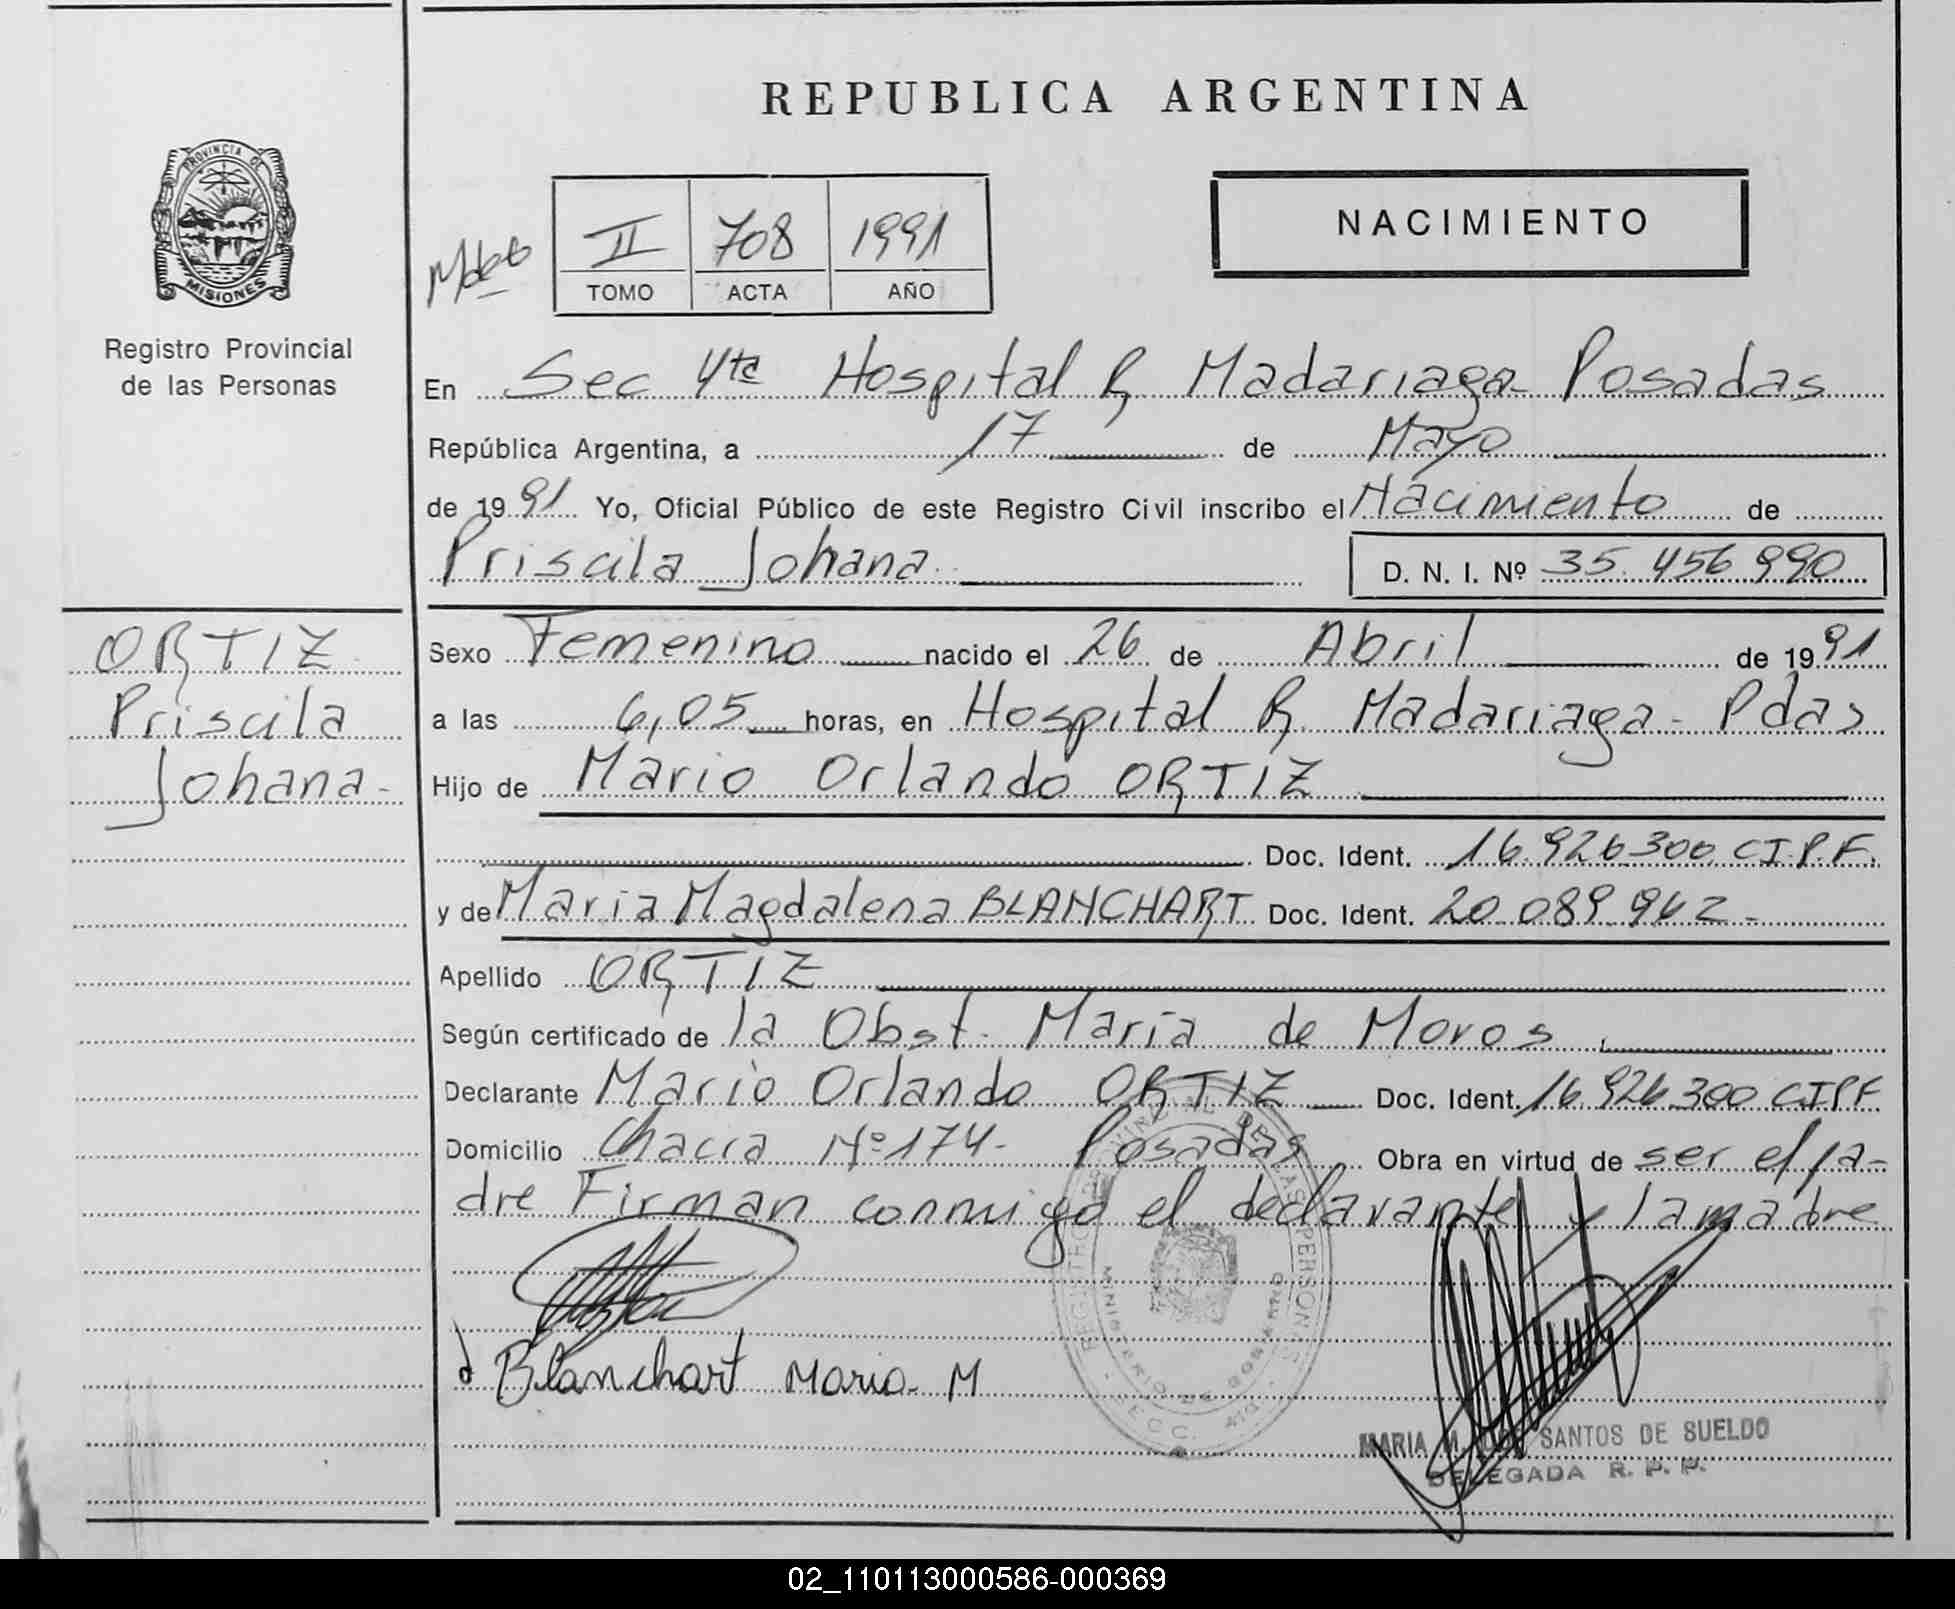 REPUBLICA ARGENTINA
PROVINCIA DE
MISIONES
Registro Provincial
de las Personas
NACIMIENTO
II 708 1991
TOMO ACTA AÑO
En Sec 4ta Hospital R Madariaga Posadas
República Argentina, a 17 de Mayo
de 1991 Yo, Oficial Público de este Registro Civil inscribo el Nacimiento de
Priscila Johana D. N. I. Nº 35.456.990
ORTIZ
Priscila
Johana-
Sexo Femenino nacido el 26 de Abril de 1991
a las 6,05 horas, en Hospital R. Madariaga - Pdas
Hijo de Mario Orlando ORTIZ
Doc. Ident. 16.926.300 CI.P.F.
y de Maria Magdalena BLANCHART Doc. Ident. 20.089.962-
Apellido ORTIZ
Según certificado de la Obst. Maria de Moros
Declarante Mario Orlando ORTIZ Doc. Ident. 16.926.300 CIPF
Domicilio Chacra Nº 174- Posadas Obra en virtud de ser el pa-
dre Firman conmigo el declarante y la madre
Blanchart Maria M
MARIA M. DOS SANTOS DE SUELDO
DELEGADA R. P. P.
REGISTRO PROVINCIAL DE LAS PERSONAS
MINISTERIO DE GOBIERNO
SECC. 4ta
02_110113000586-000369